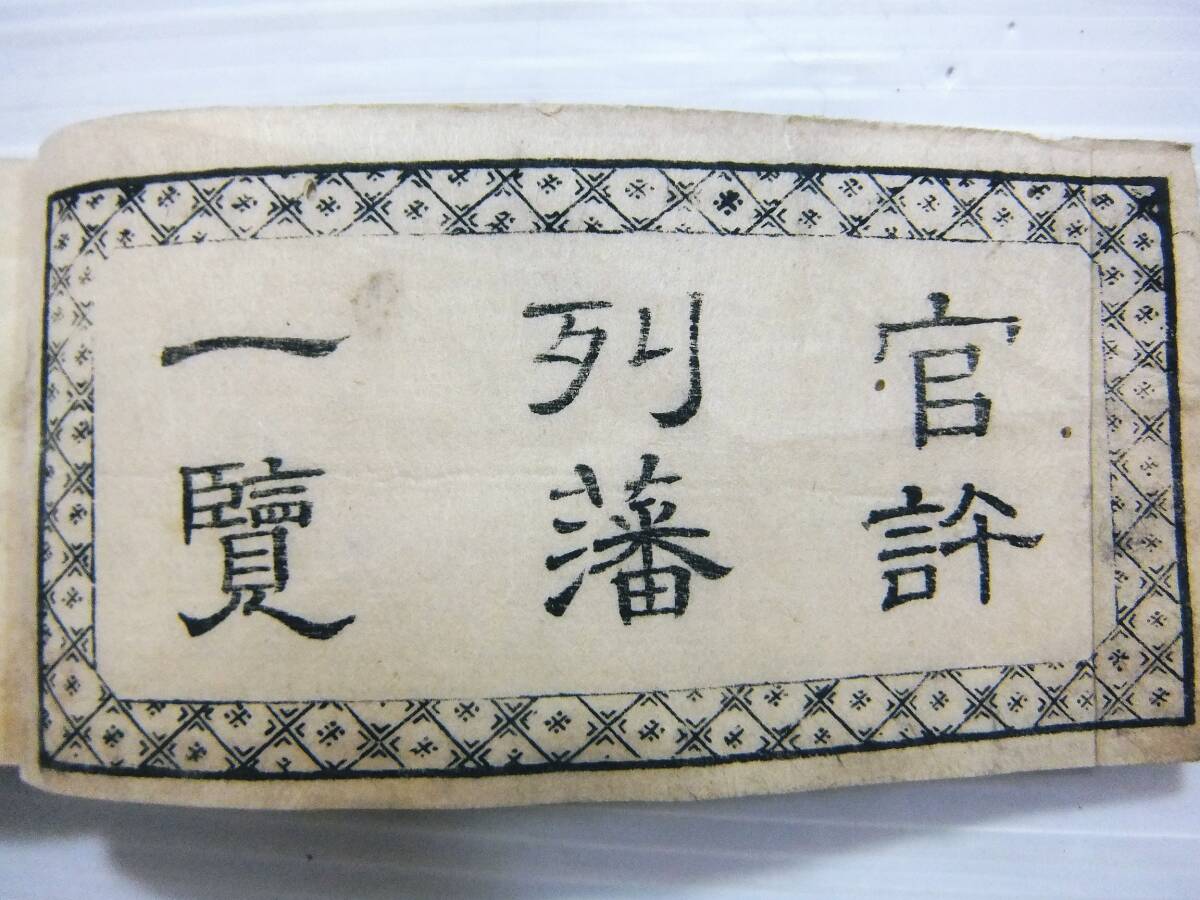 官許
列藩
一覽